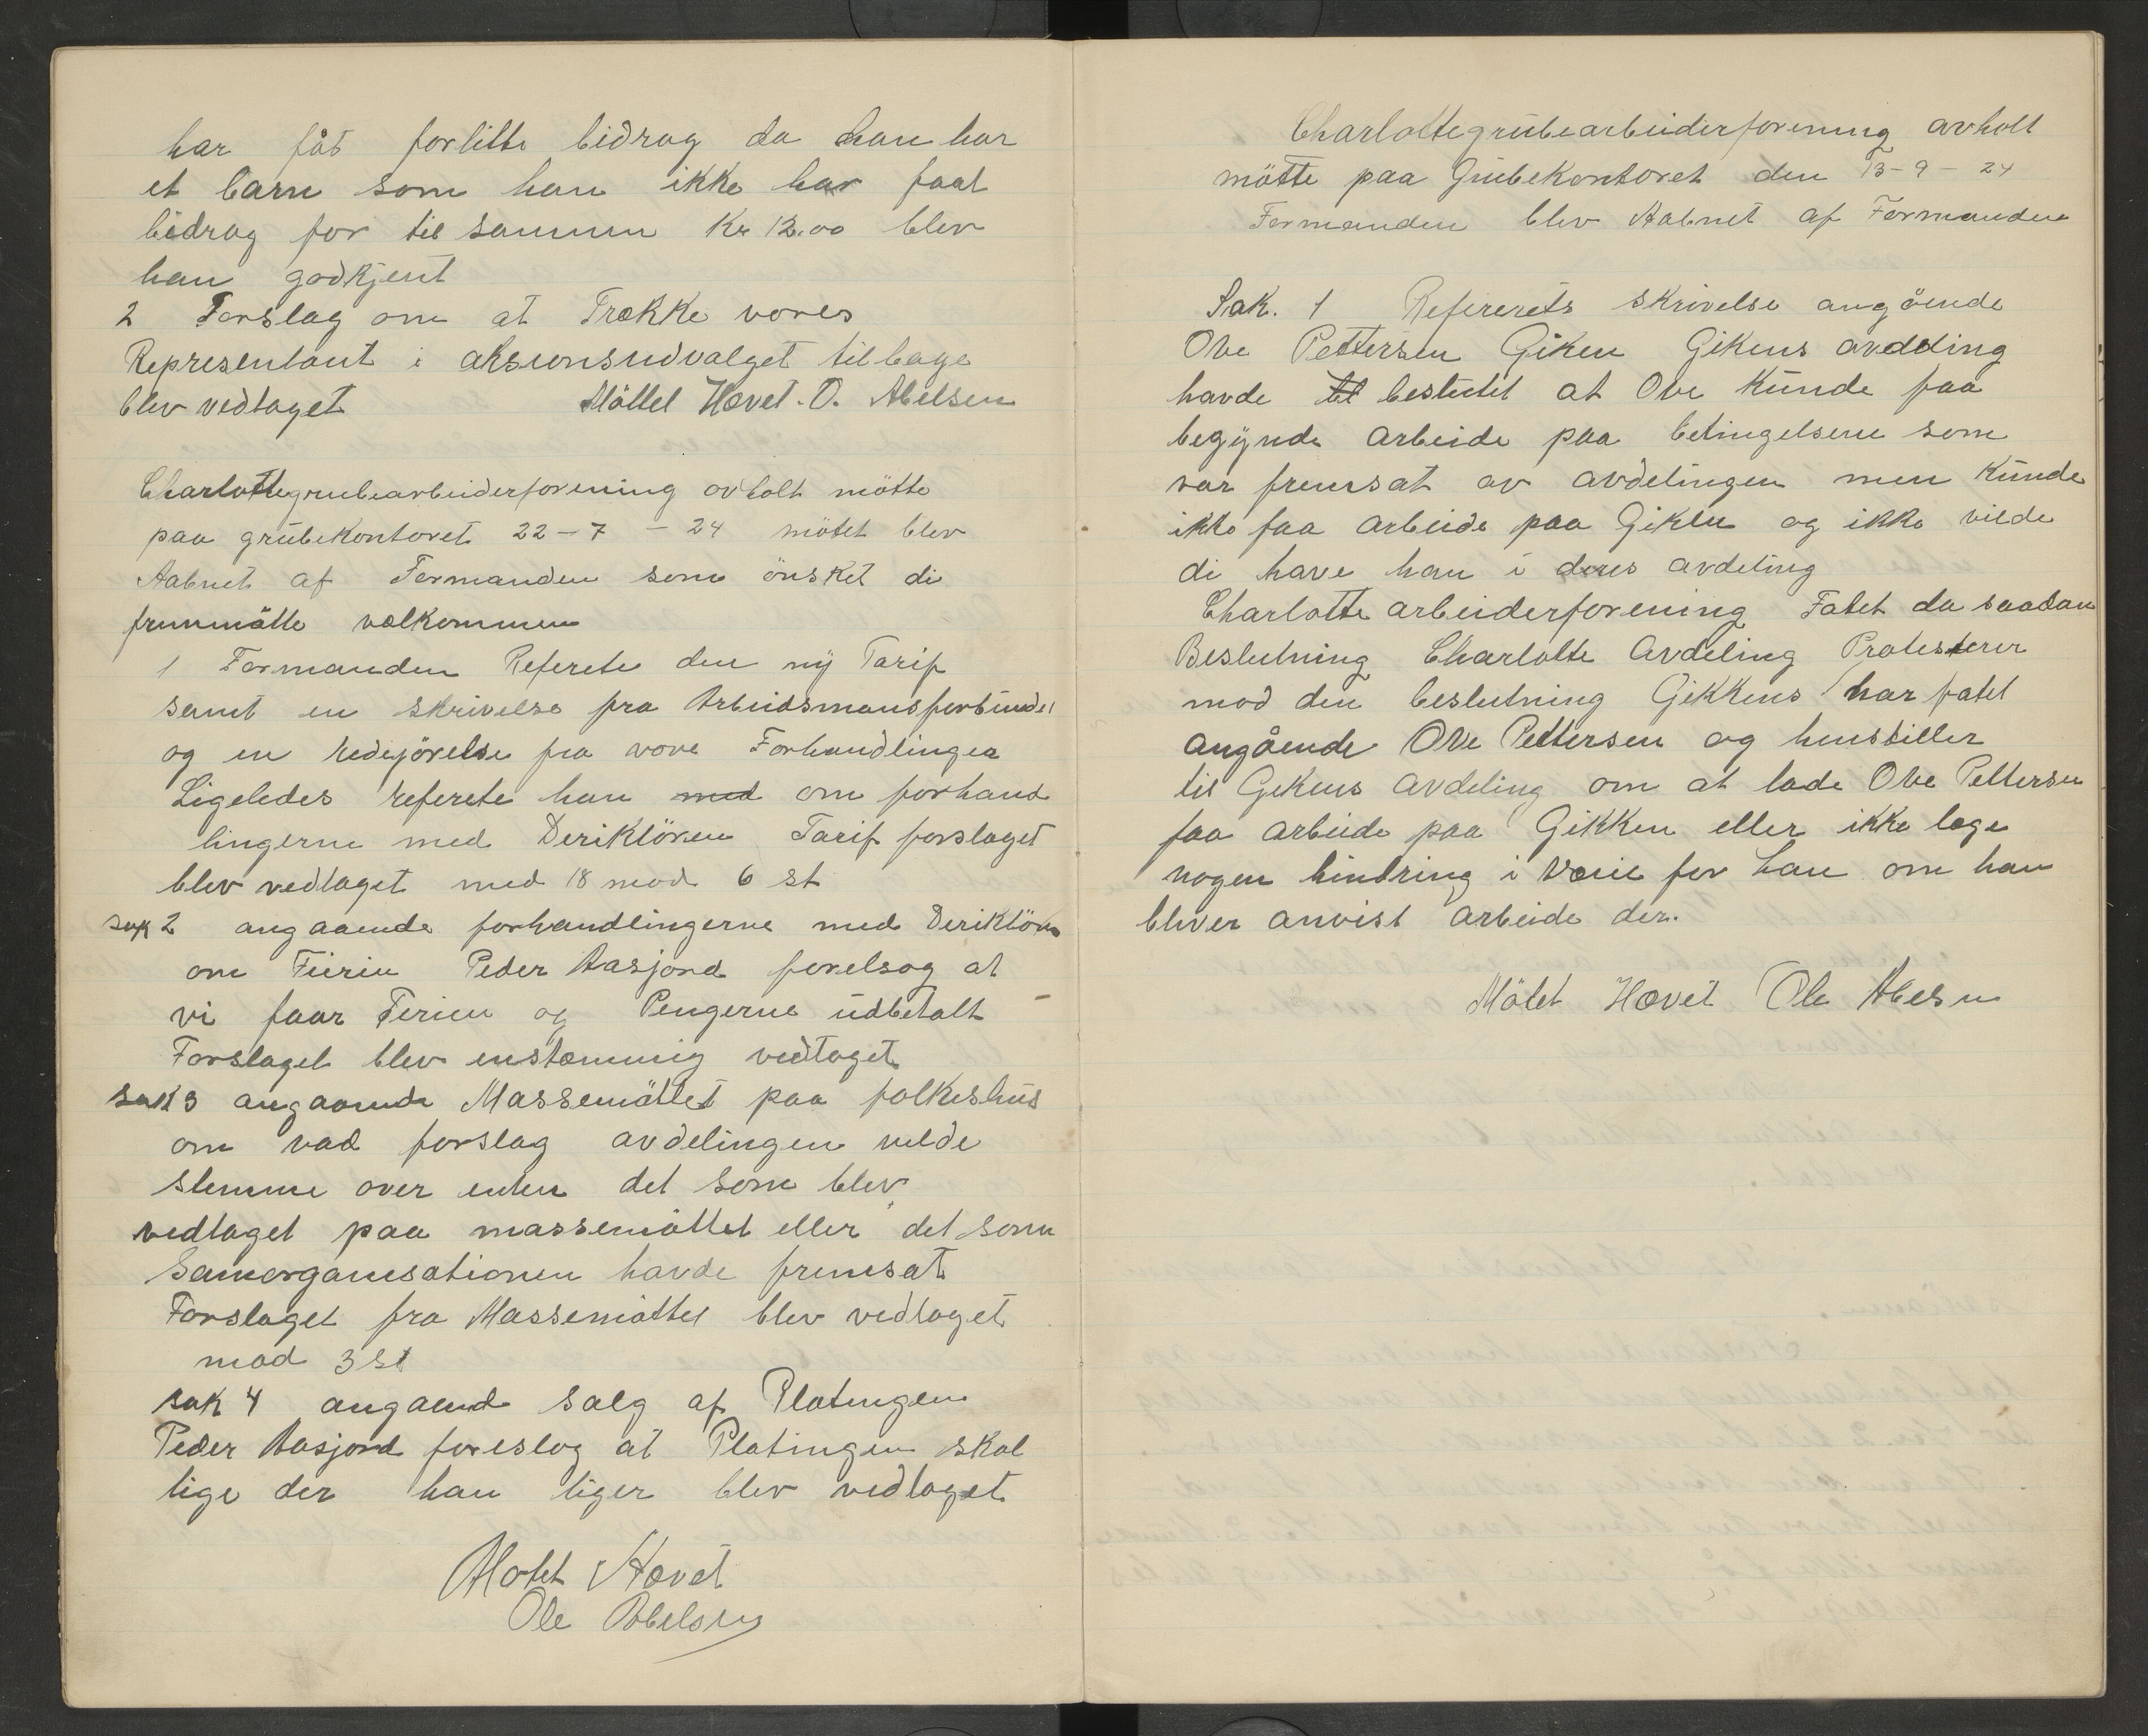 har fåt forlitte bidrag da han har
et barn som han ikke har faat
bidrag for til sammen Kr 12.00 blev
han godkjent
2 Forslag om at Trække vores
Representant i aksionsudvalget tilbage
blev vedtaget Møttet Hævet. O. Abelsen
Charlottegrubearbeiderforening avholt møtte
paa grubekontoret 22-7-24 møtet blev
Aabnet af Formanden som ønsket di
fremmøtte velkommen
1 Formanden Referete den ny Tarif
samt en skrivelse fra Arbeidsmansforbundet
og en redejørelse fra vore Forhandlinger
Ligeledes referete han med om forhand
lingerne med Deriktøren Tarif forslaget
blev vedtaget med 18 mod 6 st
sak 2 angaaende forhandlingerne med Deriktøren
om Feirin Peder Aasjord forelsog at
vi faar Ferien og Pengerne udbetalt
Forslaget blev enstemmig vedtaget
sak 3 angaaende Massemøttet paa folkeshus
om vad forslag avdelingen vilde
stemme over enten det som blev
vedtaget paa massemøttet eller det som
Samorganisationen havde fremsat
Forslaget fra Massemøttet blev vedtaget
mod 3 st
sak 4 angaend salg af Platingen
Peder Aasjord foreslog at Platingen skal
lige der han liger blev vedtaget
Møtet Hævet
Ole Abelsen
Charlottegrubearbeiderforening avholt
møtte paa Grubekontoret den 13-9-24
Formanden blev Aabnet af Formanden
Sak. 1 Refererets skrivelse angående
Ove Pettersen Giken Gikens avdeling
havde til beslutet at Ove Kunde faa
begynde arbeide paa betingelserne som
var fremsat av avdelingen men Kunde
ikke faa arbeide paa Giken og ikke vilde
di have han i deres avdeling
Charlotte arbeiderforening Fatet da saadan
Beslutning Charlotte Avdeling Protesterer
mod den beslutning Gikkens har fatet
angående Ove Pettersen og henstiller
til Gikens avdeling om at lade Ove Pettersen
faa arbeide paa Gikken eller ikke lege
nogen hindring i veie for han om han
bliver anvist arbeide der.
Møtet Hævet Ole Abelsen